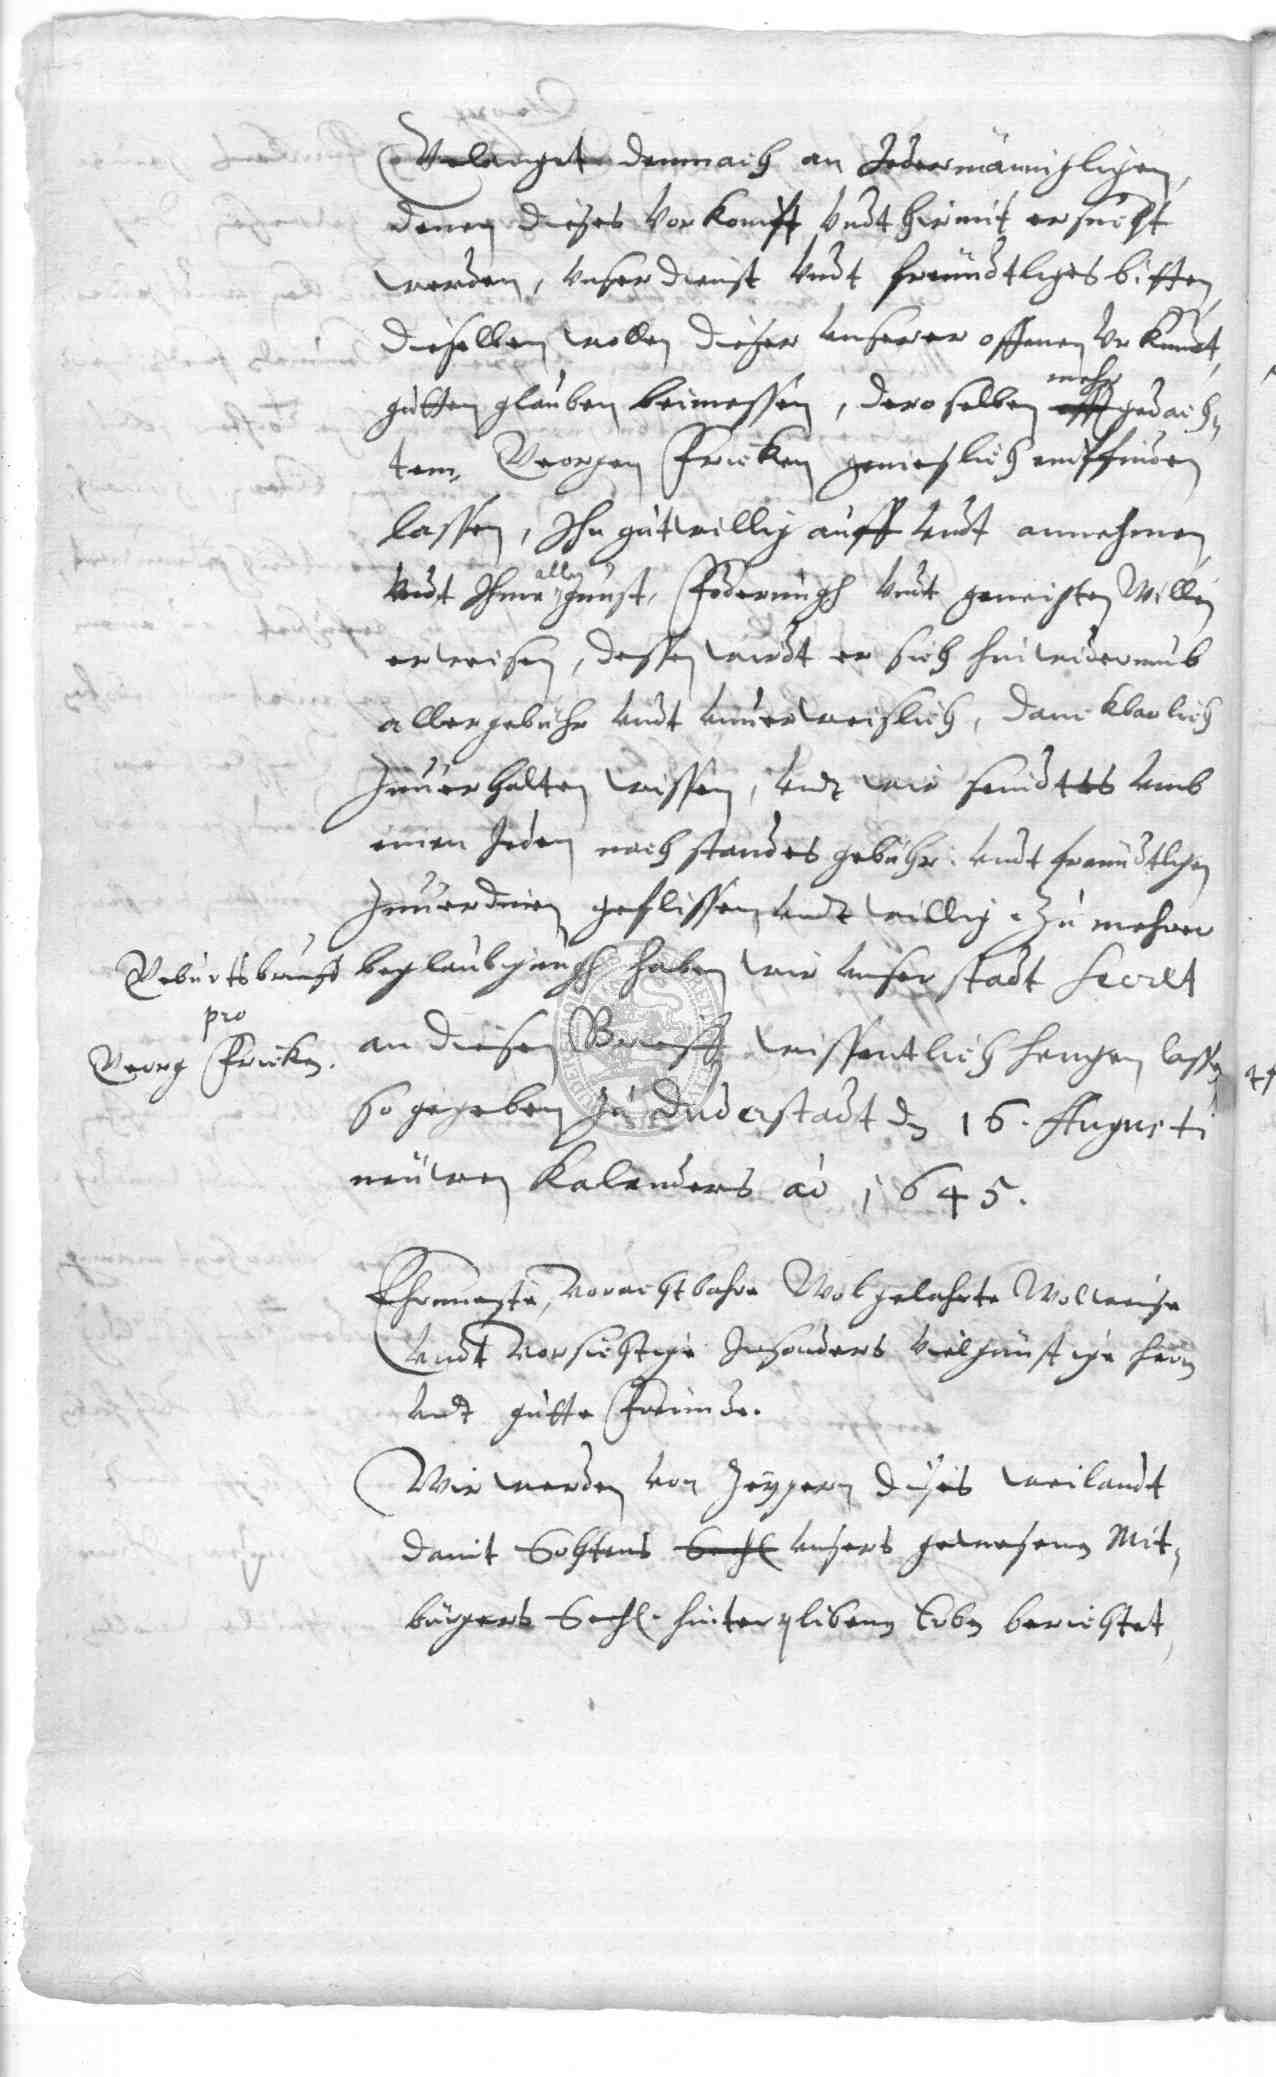 Gelanget demnach an Jedermänniglichen,
denen dieses vorkompt vndt hirmit ersucht
werden, vnser dienst vndt freundtliches bitten,
dieselben wollen dieser vnserer offenen Vrkundt,
gutten glauben beimessen, deroselben mehr gedach-
tem, Georgen Fricken genieslich empfinden
lassen, Ihn gutwillig auff vndt annehmen,
vndt Ihme alle gunst, Föderungh vndt geneigten Willen
erweisen, dessen wirdt er sich hinwiderumb
aller gebühr vndt vnuerweislich, danckbarlich
zuuerhalten wissen, vndt wir seindts vmb
einen Jeden nach standes gebühr vndt freundtlichen
zuuerdinen geflissen vndt willig. Zu mehrer
beglaubigungh haben wir vnser stadt Secret
an diesen Brieff wissentlich hengen lassen
so gegeben zu Duderstadt den 16. Augusti
neuwen Kalenders aō 1645.
Geburtsbrieff
pro
Georg Fricken.
Ehrnueste, Vorachtbahre Wolgelahrte Wolweise
vndt Vorsichtige Insonders vielgünstige hern
vndt gutte Freunde.
Wir werden von Zeygern dieses weilandt
Sechl vnsers gewesenen Mit-
bürgers Sehl. hinterplibenen Erben berichtet,